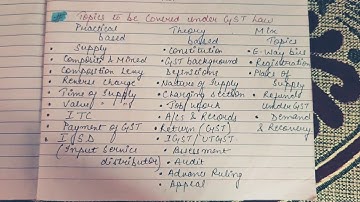 Topics to be Covered under GST Law
Practical based
• Supply
• Composite & Mixed
• Composition Levy
• Reverse Charge
• Time of Supply
• Value "
• ITC
• Payment of GST
• ISD
(Input Service distributor)
Theory based
• Constitution
• GST background
• Definitions
• Nature of Supply
• Charging Section
• Job work
• A/Cs & Records
• Return (GST)
• IGST/UTGST
• Assessment
• Audit
• Advance Ruling
• Appeal
Mix Topics
• E-Way bill
• Registration
• Place of Supply
• Refunds under GST
• Demand & Recovery